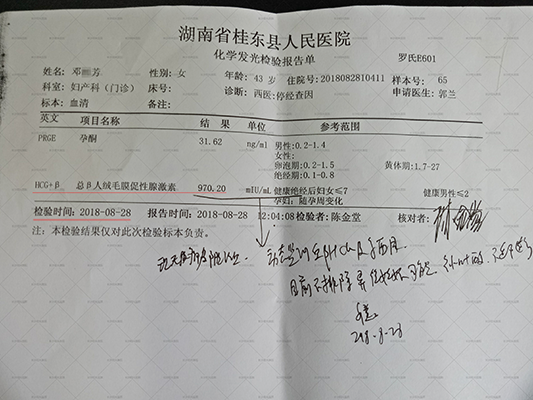 湖南省桂东县人民医院
化学发光检验报告单
罗氏E601
姓名: 邓 芳 性别: 女 年龄: 43 岁 住院号: 2018082810411 样本号: 65
科室: 妇产科(门诊) 床号: 诊断: 西医:停经查因 申请医生: 郭兰
标本: 血清 备注:
英文 项目名称 结 果 单位 参考范围
PRGE 孕酮 31.62 ng/ml 男性:0.2-1.4
女性:
卵泡期:0.2-1.5 黄体期:1.7-27
绝经期:0.1-0.8
HCG+β 总β人绒毛膜促性腺激素 970.20 mIU/mL 健康绝经后妇女≤7 健康男性≤2
孕妇: 随孕周变化
检验时间: 2018-08-28 报告时间: 2018-08-28 12:04:08 检验者: 陈金堂 核对者:
注: 本检验结果仅对此次检验标本负责。
目前不排除异
218-8-28